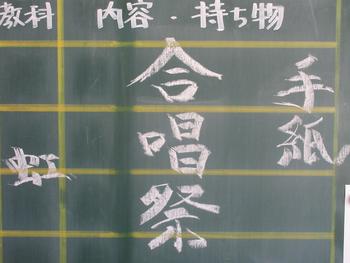 教科 内容・持ち物
手紙
合唱祭
虹